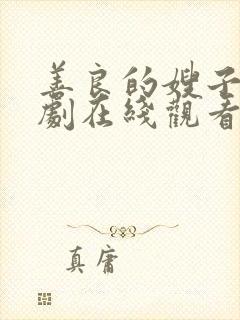 善良的嫂子
劇在綫觀看
真庸